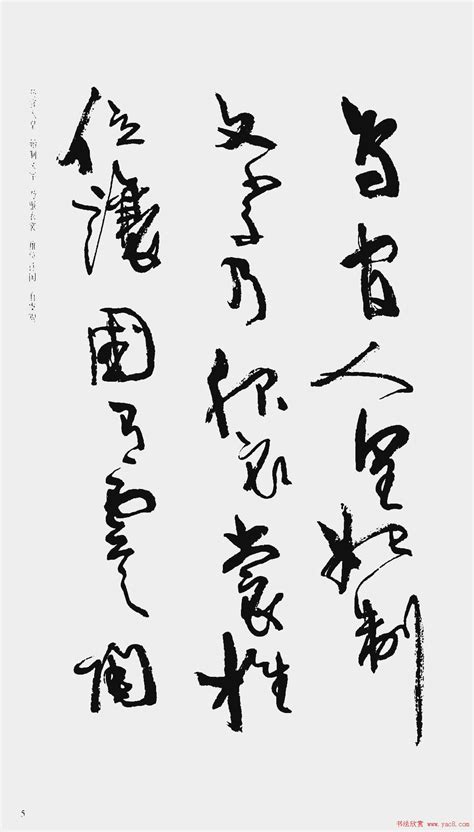 鳥官人皇始制
文字乃服衣裳推
位讓國有虞陶
5
书法欣赏 www.yac8.com